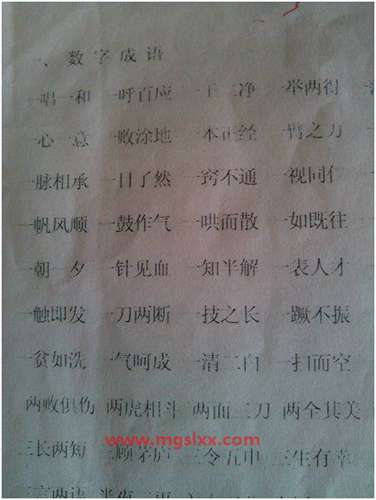 一、数字成语
一唱一和 一呼百应 一干二净 一举两得
一心一意 一败涂地 一本正经 一臂之力
一脉相承 一目了然 一窍不通 一视同仁
一帆风顺 一鼓作气 一哄而散 一如既往
一朝一夕 一针见血 一知半解 一表人才
一触即发 一刀两断 一技之长 一蹶不振
一贫如洗 一气呵成 一清二白 一扫而空
两败俱伤 两虎相斗 两面三刀 两全其美
www.mgslxx.com
三长两短 三顾茅庐 三令五申 三生有幸
三言两语